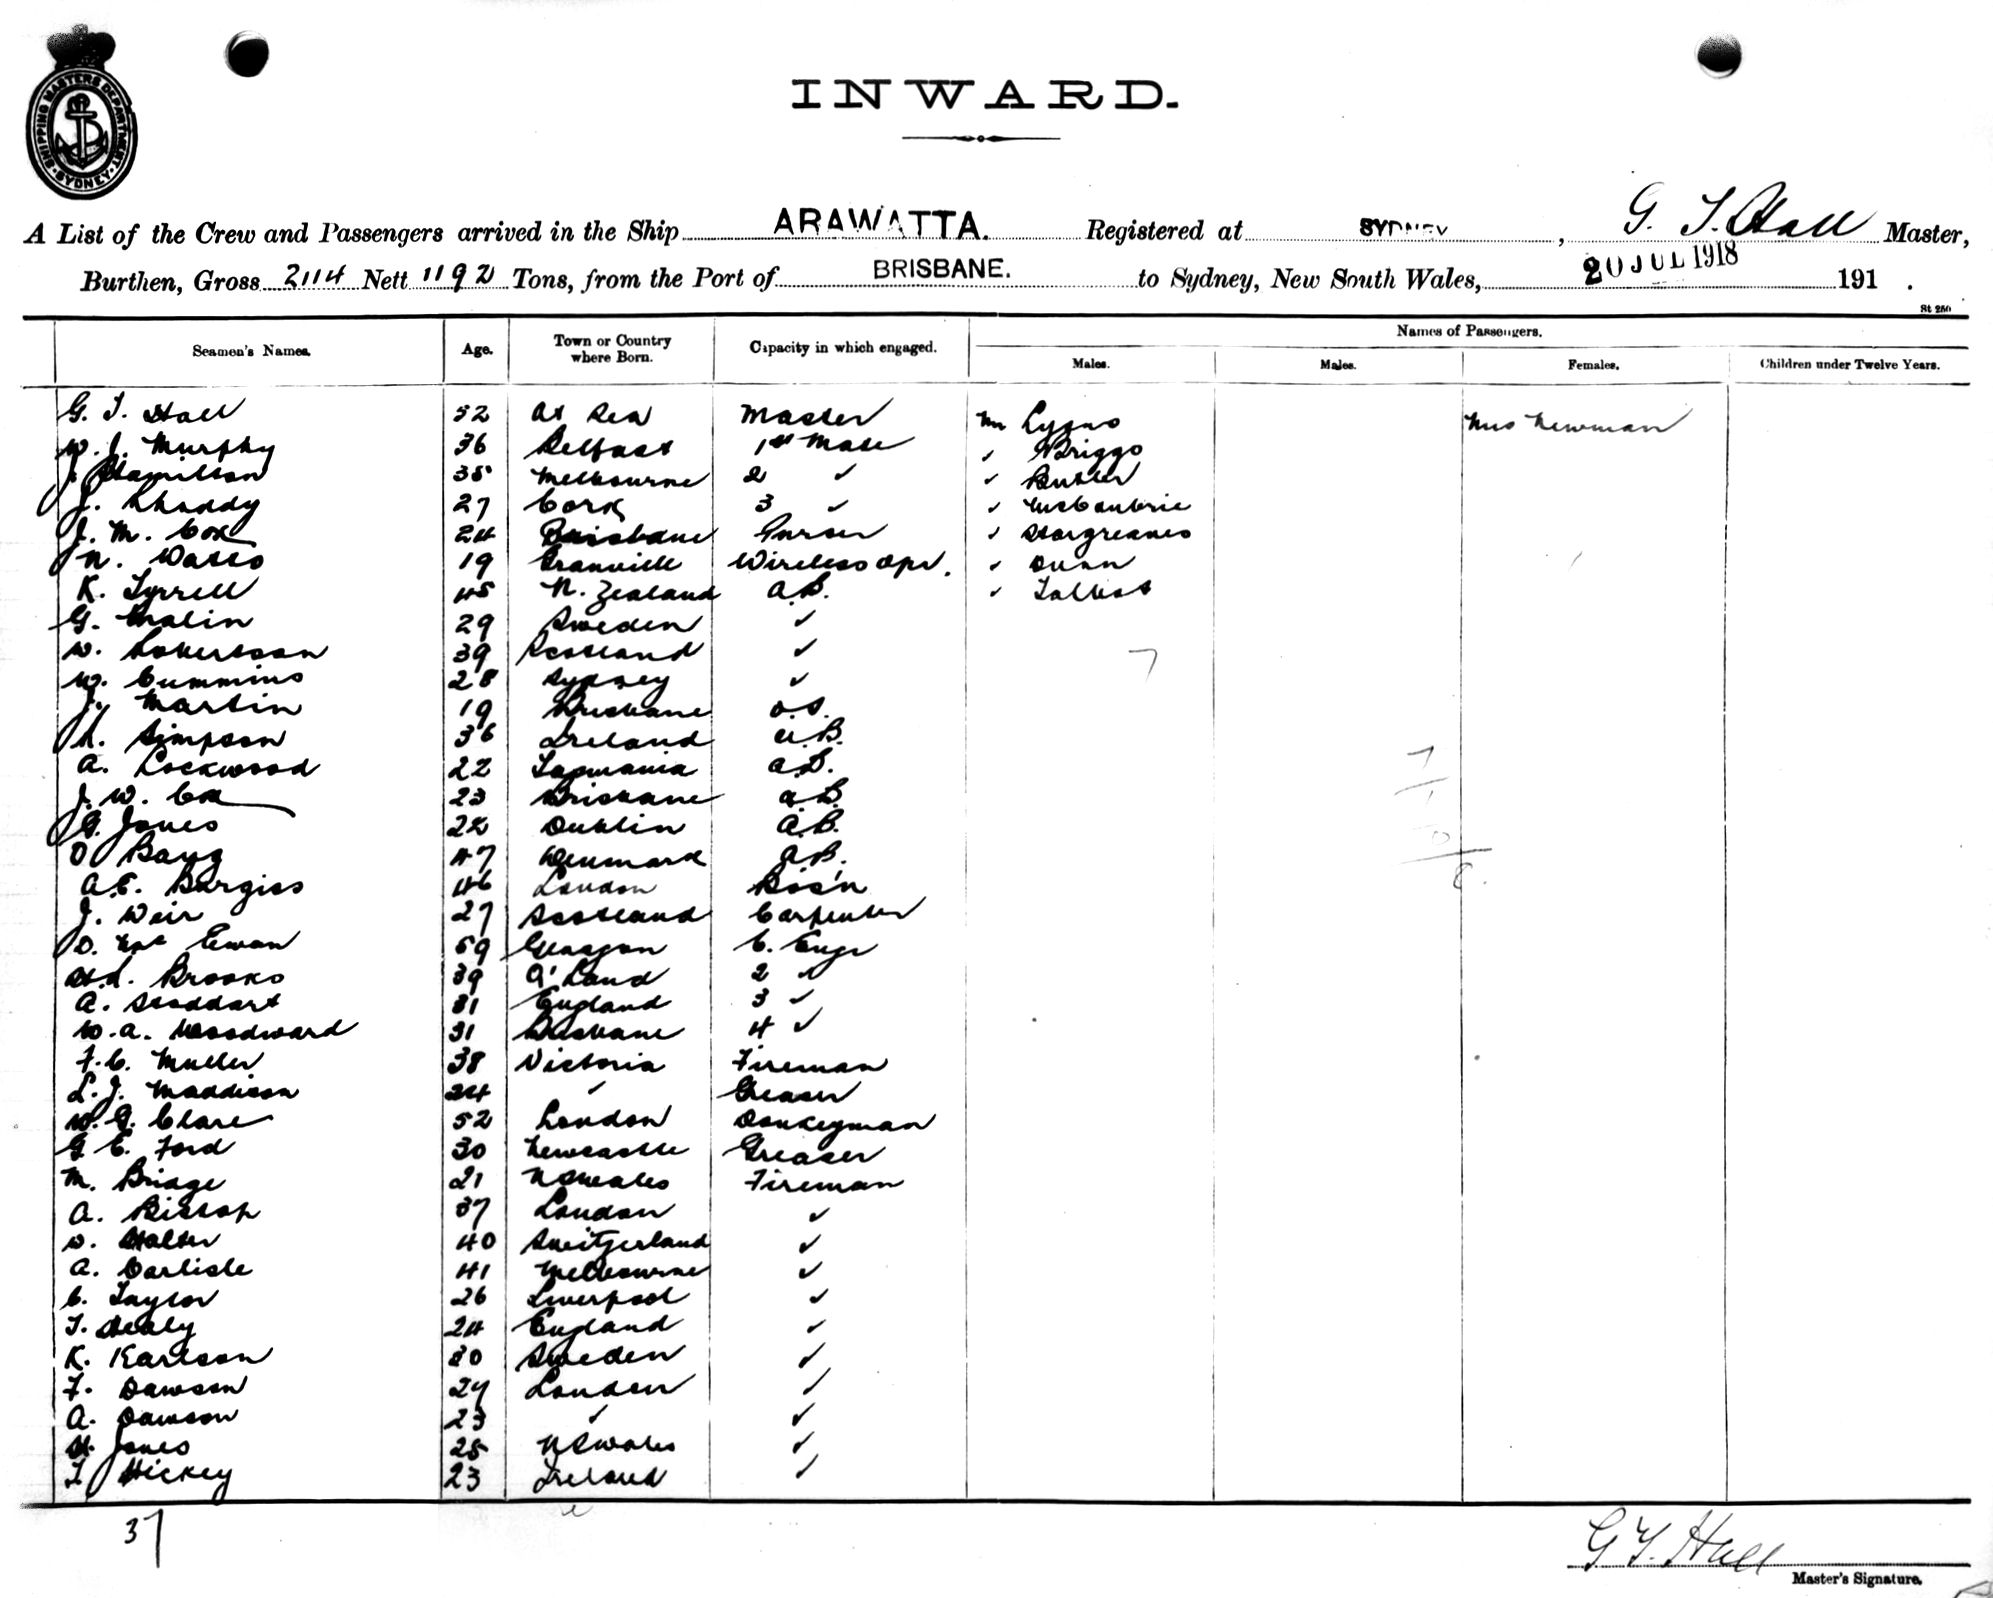 SHIPPING MASTERS DEPARTMENT
SYDNEY
INWARD.
A List of the Crew and Passengers arrived in the Ship ARAWATTA. Registered at SYDNEY, G. T. Hall Master,
Burthen, Gross 2114 Nett 1192 Tons, from the Port of BRISBANE. to Sydney, New South Wales, 20 JUL 1918 191 .
St 250
Seamen's Names. Age. Town or Country where Born. Capacity in which engaged. Names of Passengers.
Males. Males. Females. Children under Twelve Years.
G. T. Hall 52 At Sea Master Mr Lyons Mrs Newman
W. J. Murphy 36 Belfast 1st Mate ✓ Briggs
J. Hamilton 35 Melbourne 2 ✓ ✓ Butler
J. 27 Cork 3 ✓ ✓
J. M. Cox 24 Brisbane Purser ✓ Hargreaves
N. Watts 19 Granville Wireless Opr. ✓ Dunn
K. Tyrrell 45 N. Zealand A.B. ✓ Talbot
G. Malin 29 Sweden ✓
W. Robertson 39 Scotland ✓ 7
W. Cummins 28 Sydney ✓
J. Martin 19 Brisbane O.S.
Simpson 36 Ireland A.B.
A. Lockwood 22 Tasmania A.B.
J. W. Cox 23 Brisbane A.B.
G. Jones 22 Dublin A.B.
O Bang 47 Denmark A.B.
A.E. Burgiss 46 London Bos'n
J. Weir 27 Scotland Carpenter
D. Mc Ewan 59 Glasgow C. Engr
H.L. Brooks 39 Q'Land 2 ✓
A. Stoddart 31 England 3 ✓
W.A. Woodward 31 Brisbane 4 ✓
F.C. Muller 38 Victoria Fireman
L. J. Maddison 24 ✓ Greaser
W. G. Clare 52 London Donkeyman
G E. Ford 30 Newcastle Greaser
M. Bridge 21 NSWales Fireman
A. Bishop 37 London ✓
W. Halter 40 Switzerland ✓
A. Carlisle 41 Melbourne ✓
C. Taylor 26 Liverpool ✓
T. Healy 24 England ✓
K. Karlson 30 Sweden ✓
F. Dawson 27 London ✓
A. Dawson 23 ✓ ✓
H. Jones 25 NSWales ✓
T Hickey 23 Ireland ✓
37
G T Hall
Master's Signature.